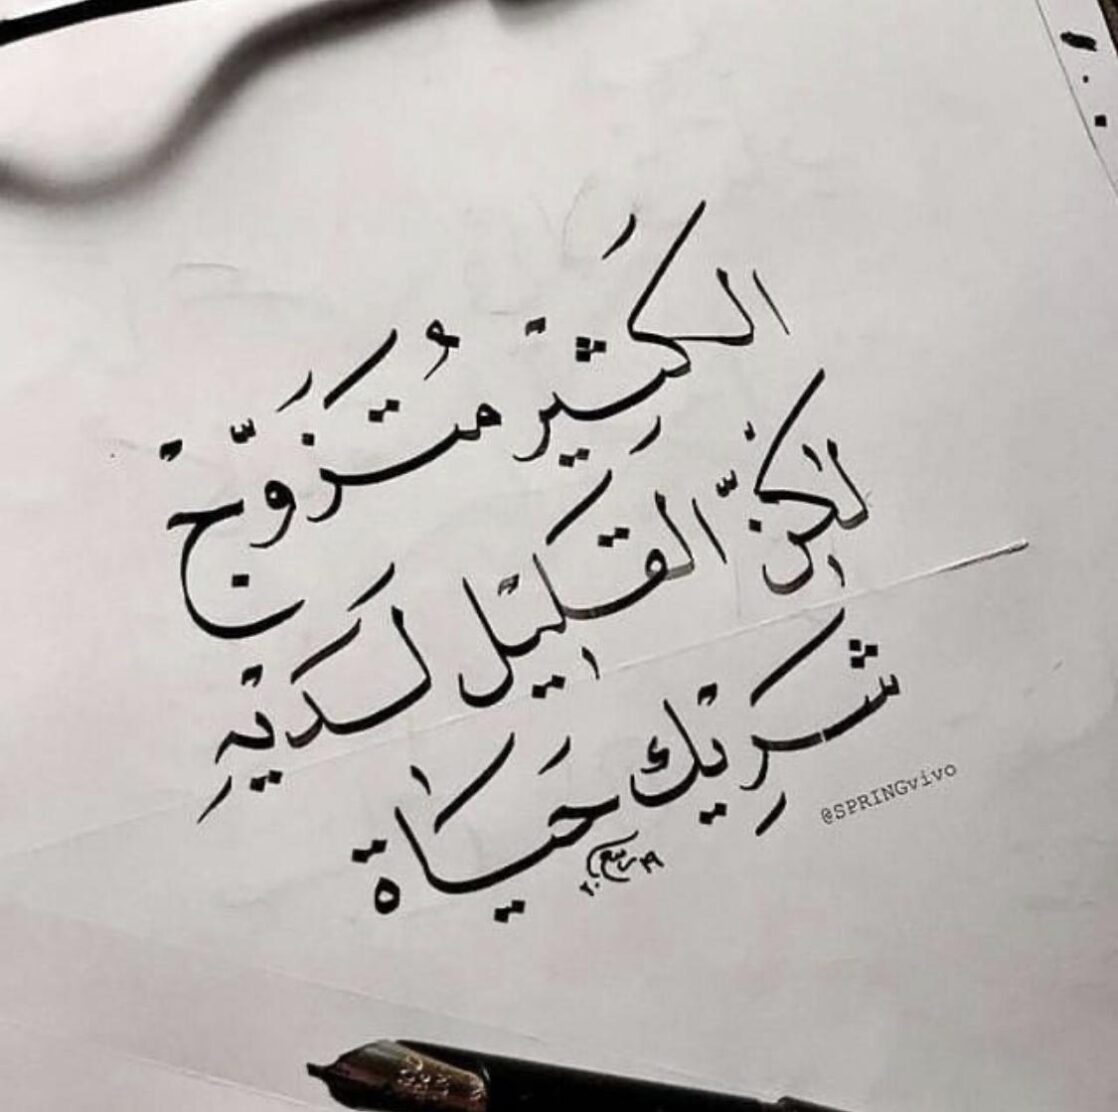 الكَثيْر مُتَزَوّجْ
لٰكنّ القَليْل لَديْهِ
شَرِيْك حَيَاة
@SPRINGvivo
ربيع